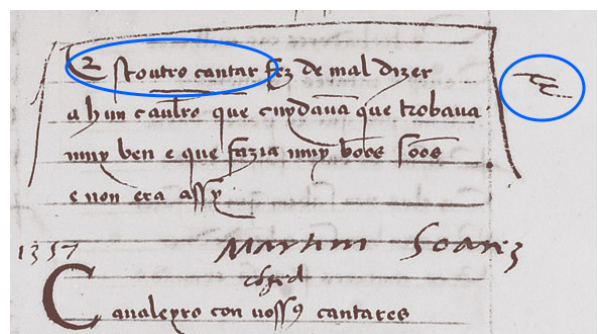 Estoutro cantar fez de mal dizer
a hun caualro que cuydaua que trobaua
muy ben e que fazia muy bõos sõos
e non era assy
1357 Martim Soarez
Caualeyro con uossꝯ cantares